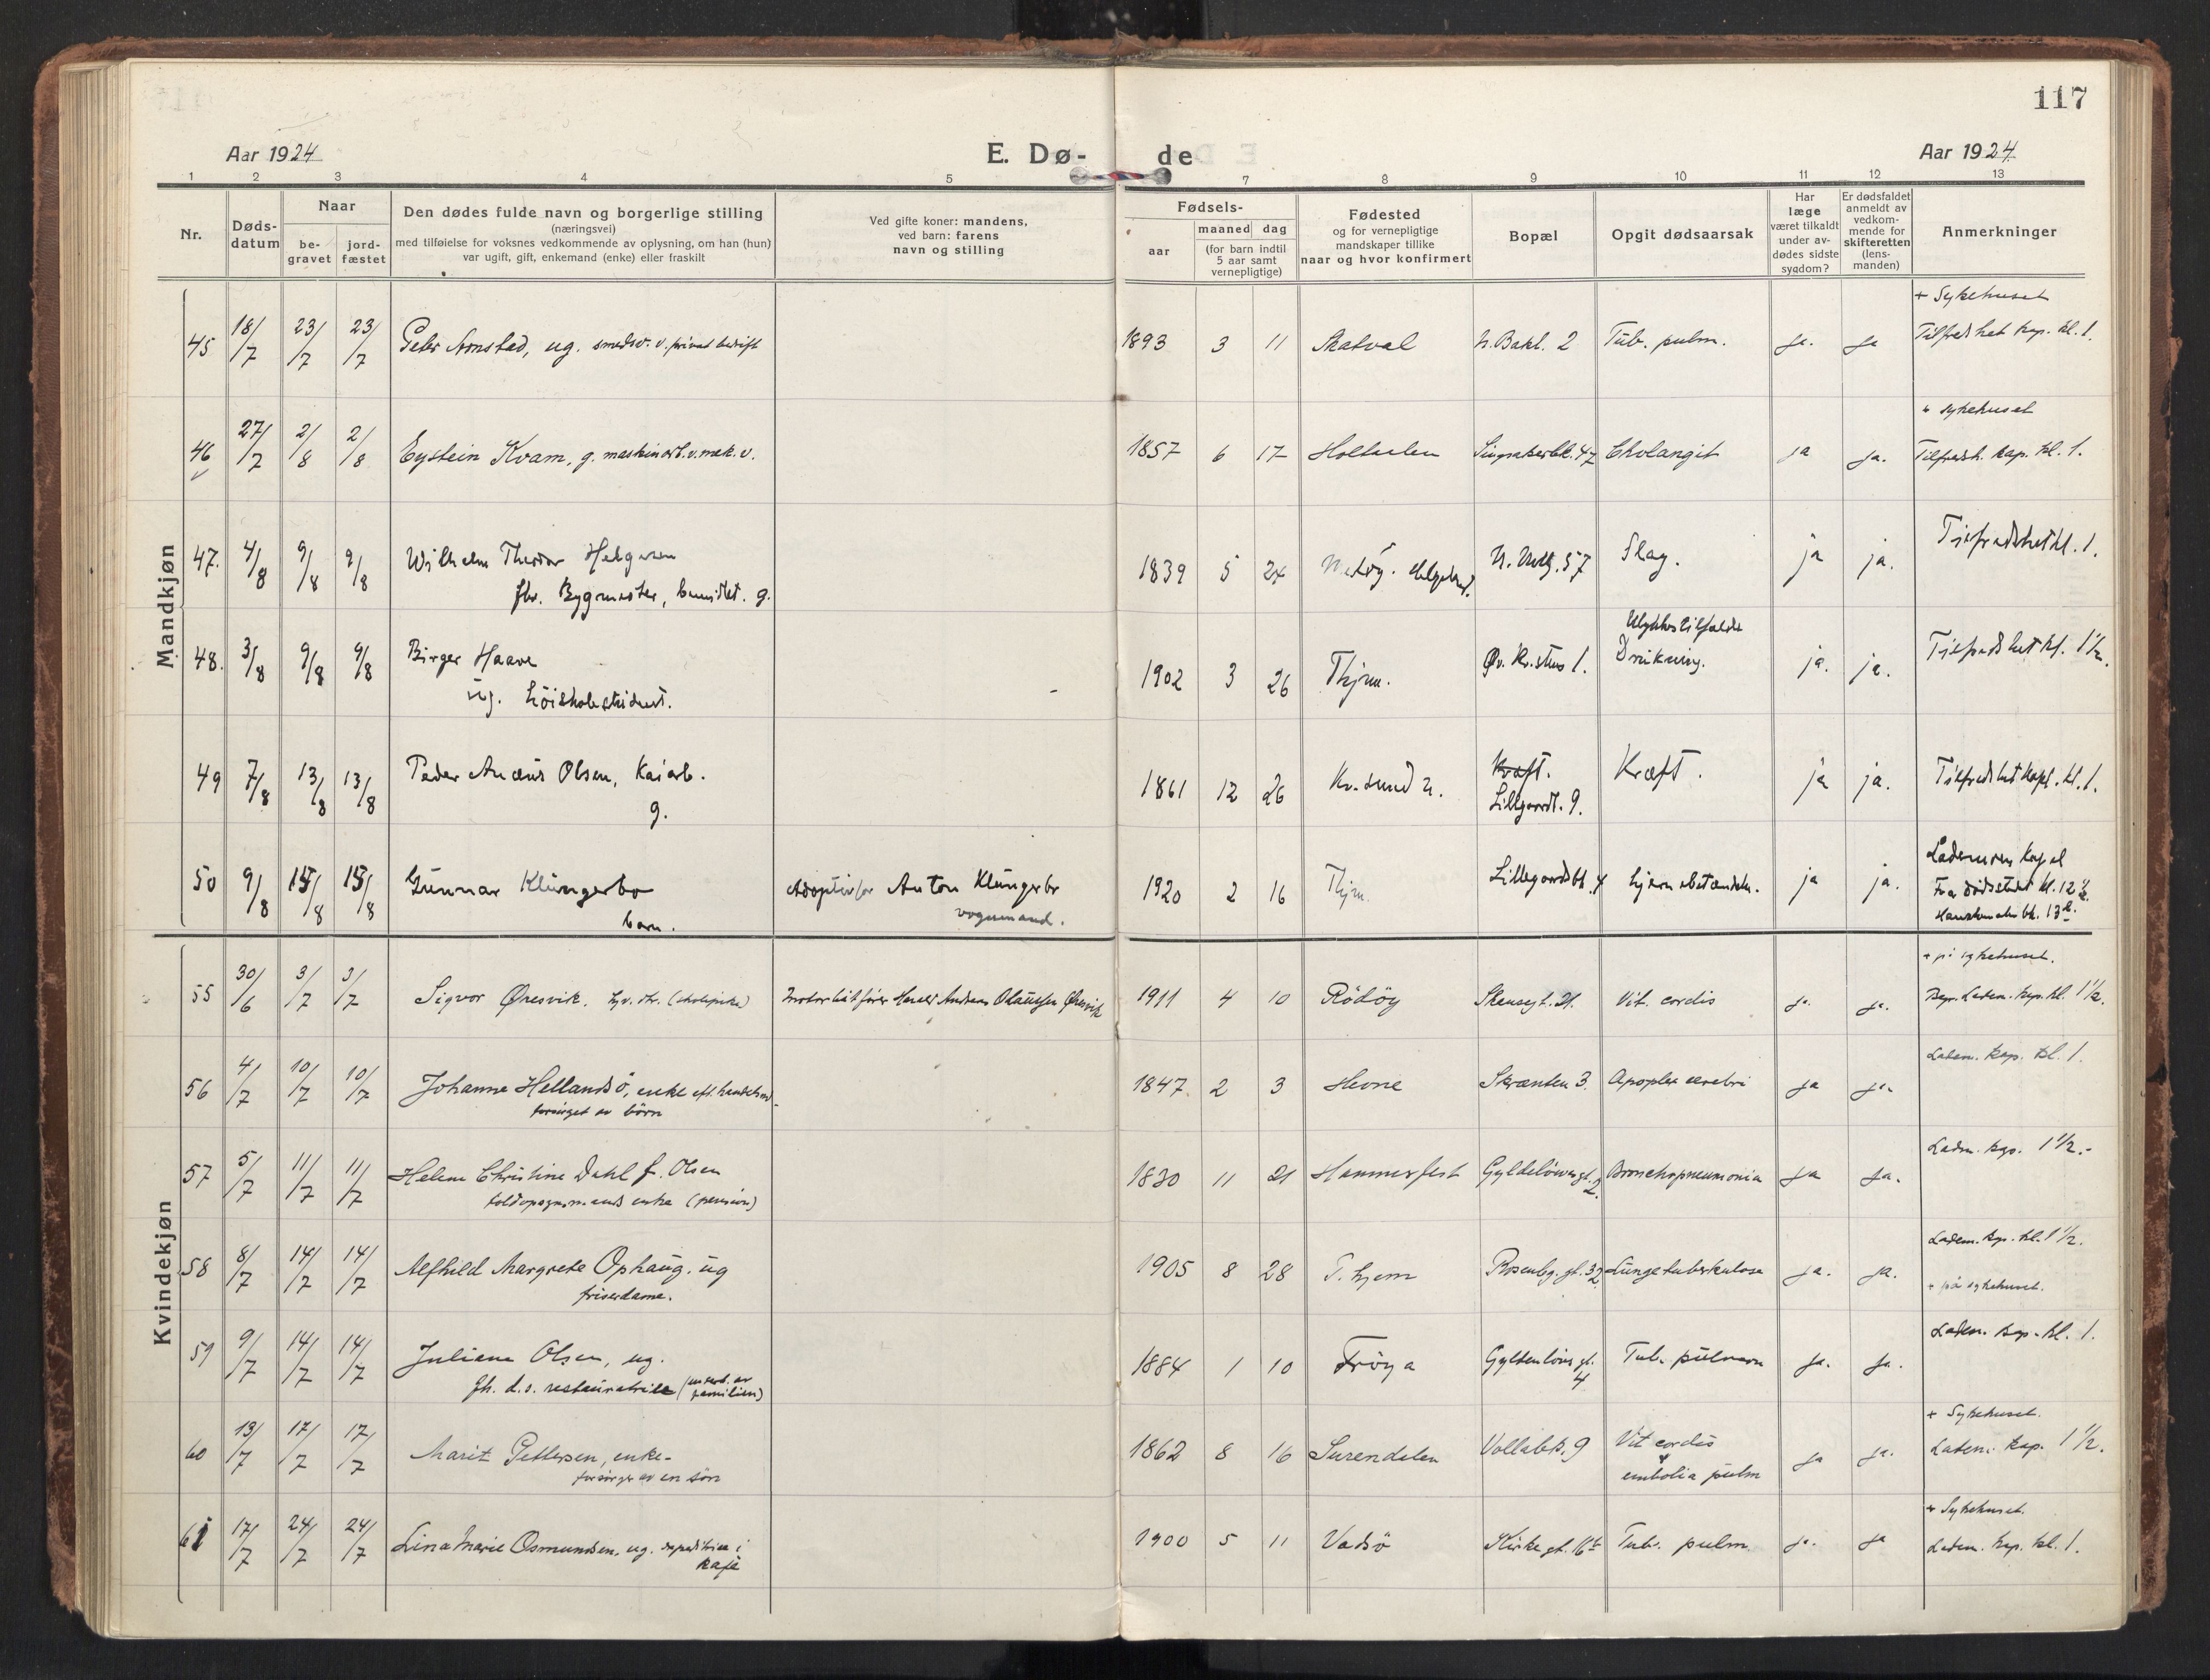 117
Aar 1924 E. Dø- de Aar 1924
1 2 3 4 5 7 8 9 10 11 12 13
Nr.
Døds-
datum
Naar
be-
gravet
jord-
fæstet
Den dødes fulde navn og borgerlige stilling
(næringsvei)
med tilføielse for voksnes vedkommende av oplysning, om han (hun)
var ugift, gift, enkemand (enke) eller fraskilt
Ved gifte koner: mandens,
ved barn: farens
navn og stilling
Fødsels-
aar
maaned dag
(for barn indtil
5 aar samt
vernepligtige)
Fødested
og for vernepligtige
mandskaper tillike
naar og hvor konfirmert
Bopæl
Opgit dødsaarsak
Har
læge
været tilkaldt
under av-
dødes sidste
sygdom?
Er dødsfaldet
anmeldt av
vedkom-
mende for
skifteretten
(lens-
manden)
Anmerkninger
Mandkjøn
+ Sykehuset
45 18/7 23/7 23/7 Peter Arnstad, ug. smedsv. v. privat bedrift 1893 3 11 Skatval N. Bakl. 2 Tub. pulm. ja. ja Tilfredshet kap. kl. 1.
+ sykehuset
46 27/7 2/8 2/8 Eystein Kvam, g. maskinarb. v. mek. v. 1857 6 17 Holtaalen Singsakerbk. 47 Cholangit ja ja. Tilfredsh. kap. kl. 1.
47. 4/8 9/8 9/8 Wilhelm Theodor Helgesen 1839 5 24 Slag. ja ja. Tilfredshet kl. 1.
fhv. Bygmester, g.
Ulykkestilfælde
48. 3/8 9/8 9/8 Birger Haave 1902 3 26 Thjm. Øv. 1. Drukning. ja. ja. Tilfredshet kl. 1½.
ug. høiskolestudent.
49 7/8 13/8 13/8 Peder Anæus Olsen, Kaiarb. 1861 12 26 Kr.sund N. Kræft. Kræft. ja ja. Tilfredshet kapl. kl. 1.
g. Lillegaardt. 9.
Lademoen Kapel
50 9/8 15/8 15/8 Gunnar Klungerbo Adoptivfar Anton Klungerbo 1920 2 16 Thjm. Lillegaardsbk. 4 hjernebetændelse. ja ja. Fra dødsstedet kl. 12½.
barn. vognmand.
Kvindekjøn
+ på sykehuset.
55 30/6 3/7 3/7 Sigvor Øresvik. (skolepike) Motorbåtfører Andreas Olaussen Øresvik 1911 4 10 Rödöy 21. Vit. cordis ja. ja. Begr. Ladem. kap. kl. 1½.
56 4/7 10/7 10/7 Johanne Hellandsö, enke eft. handelsmd. 1847. 2 3 Hevne Skrænten 3. Apoplex cerebri ja ja. Ladem. kap. kl. 1.
forsörget av börn
57 5/7 11/7 11/7 Helene Christine Dahl f. Olsen 1830 11 21 Hammerfest Gyldeløvesgt. 2. Bronchopneumonia ja ja. Ladm. kap. 1½.-
toldopsynsmands enke (pension)
58 8/7 14/7 14/7 Alfhild Margrete Ophaug. ug 1905 8 28 T.hjem Rosenbg. gt. 32 Lungetuberkulose ja. ja. Ladem. kap. kl. 1½.
friserdame. + på sykehuset.
59 9/7 14/7 14/7 Juliane Olsen, ug. 1884 1 10 Fröya Gyldenlöves gt. 4 Tub. pulmon ja. ja. Ladem. kap. kl. 1.
fh. d.s. restauratrice (undert. av familien)
+ Sykehuset.
60 13/7 17/7 17/7 Marit Pettersen, enke- 1862 8 16 Surendalen Vollabk. 9 Vit cordis ja ja. Ladem. kap. 1½.
forsörges av en sön embolia pulm
+ Sykehuset.
61 17/7 24/7 24/7 Lina Marie Osmundsen, ug. expeditrice i 1900 5 11 Vadsö Kirkegt. 16b Tub. pulm. ja. ja Ladem. kap. kl. 1.
kafé